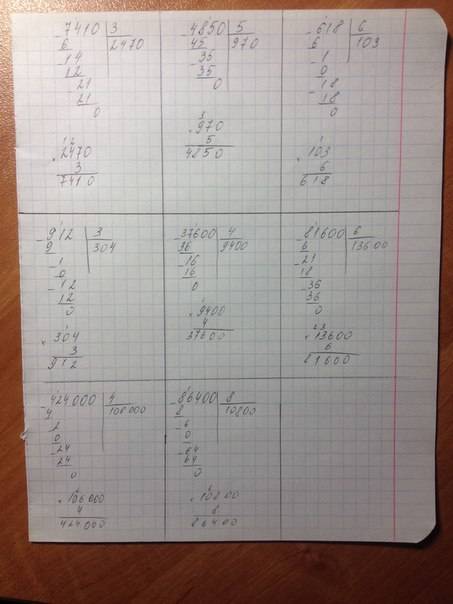 -7410 3
6 2470
-14
12
21
21
0
12
×2470
3
7410
-4850 5
45 970
-35
35
0
3
×970
5
4850
-618 6
6 103
-1
0
-18
18
0
1
×103
6
618
-912 3
9 304
-1
0
-12
12
0
1
×304
3
912
-37600 4
36 9400
-16
16
0
1
×9400
4
37600
-81600 6
6 13600
-21
18
-36
36
0
23
×13600
6
81600
-424000 4
4
2
0
-24
24
0
2
×106000
4
424000
-86400 8
8 10800
-6
0
-64
64
0
6
×10800
8
86400